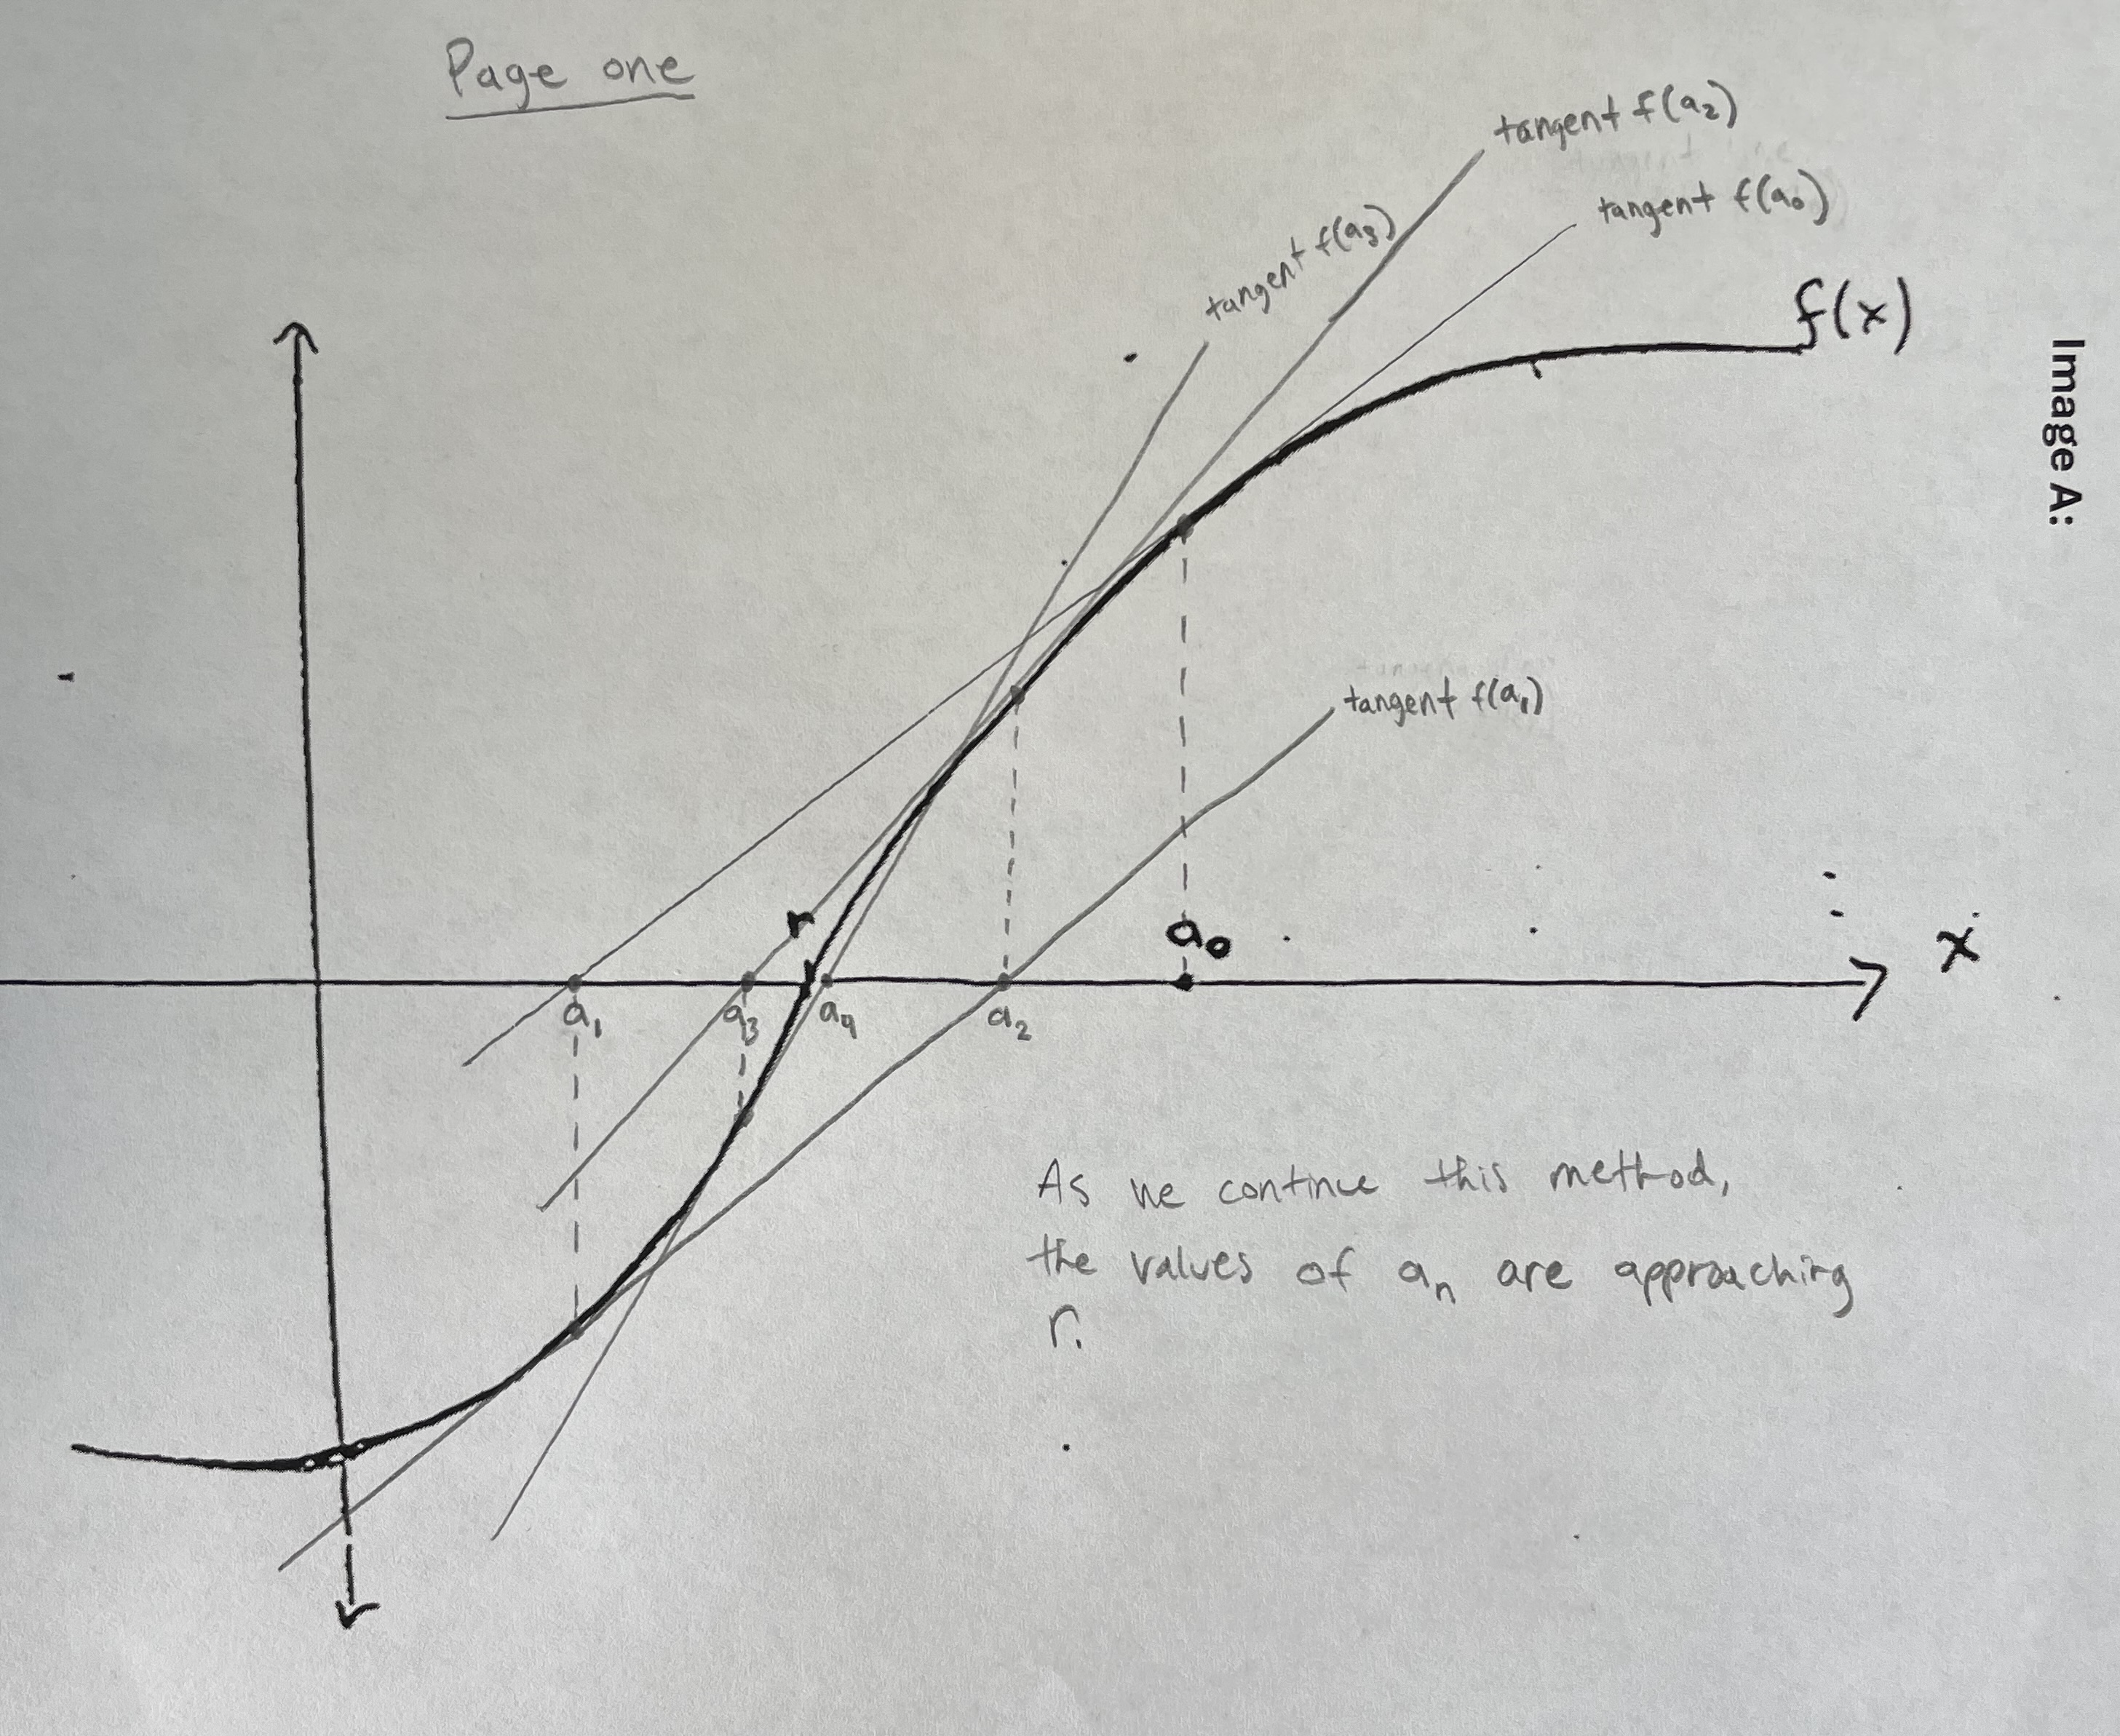 Page one
tangent f(a₂)
tangent f(a₀)
tangent f(a₃)
f(x)
Image A:
tangent f(a₁)
r
a₀
x
a₁
a₃
a₄
a₂
As we continue this method,
the values of aₙ are approaching
r.